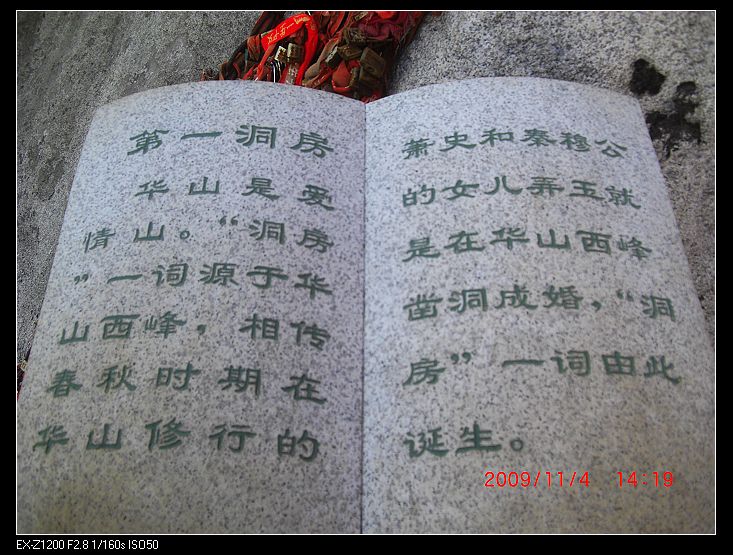 第一洞房
华山是爱
情山。“洞房
”一词源于华
山西峰，相传
春秋时期在
华山修行的
萧史和秦穆公
的女儿弄玉就
是在华山西峰
凿洞成婚，“洞
房”一词由此
诞生。
2009/11/4 14:19
EX-Z1200 F2.8 1/160s ISO50